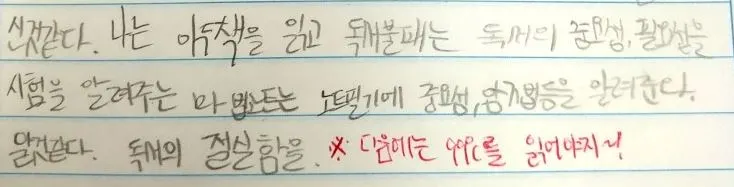 신것같다. 나는 이두책을 읽고 독서불패는 독서의 중요성, 필요성을
시험을 알려주는 마법노트는 노트필기에 중요성, 암기법등을 알려준다.
알것같다. 독서의 절실함을. ※ 다음에는 99℃를 읽어야지~!